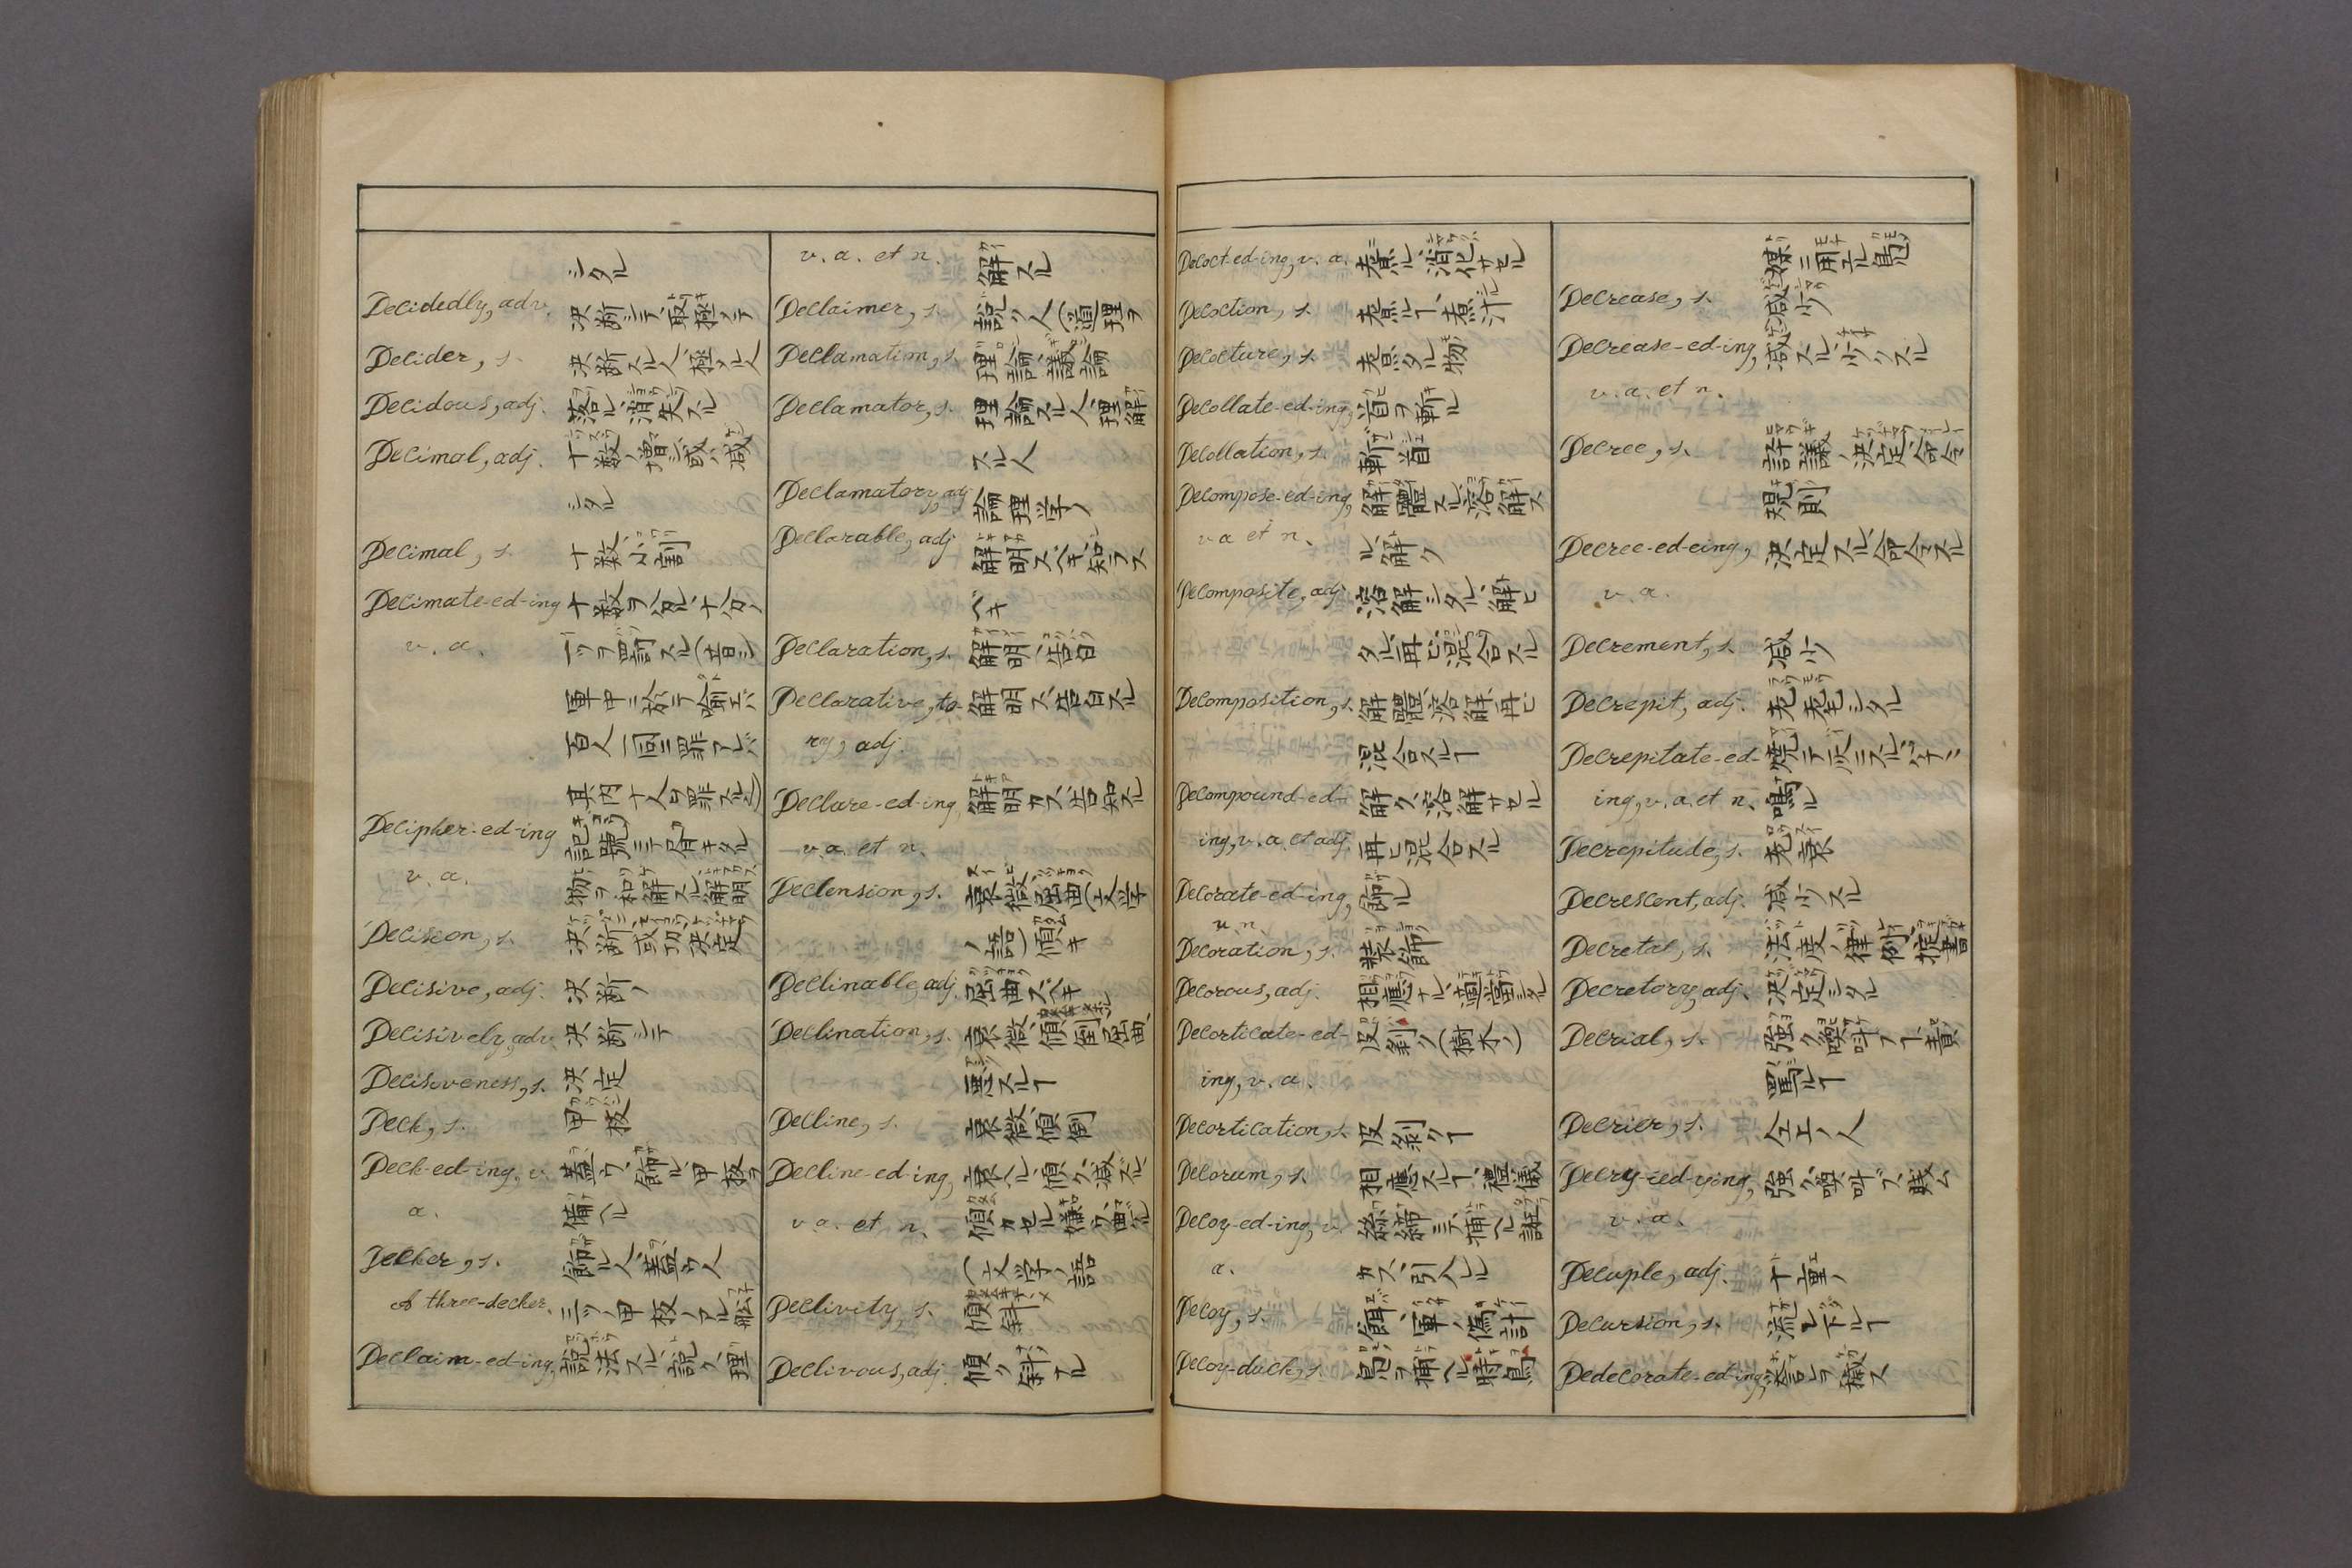 シタル
Decidedly, adv. 決斷シテ、取極メテ
Decider, s. 決斷スル人、極ル人
Decidous, adj. 落ル、消失スル
Decimal, adj. 十数ノ、増シ或ハ減
シタル
Decimal, s. 十数、小割
Decimate-ed-ing 十数ヲ分ル、十分ノ
v. a. 一ツヲ罰スル(昔シ
軍中ニ於テ喩ヱバ
百人一同ニ罪アレバ
其内十人ヲ罪スル也)
Decipher-ed-ing 記號ニテ書キタル
v. a. 物ヲ和解スル、解明
Decision, s. 決斷、或功、決定
Decisive, adj. 決斷ノ
Decisively, adv. 決斷シテ
Decisiveness, s. 決定
Deck, s. 甲板
Deck-ed-ing, v. 蓋ウ、飾ル、甲板ヲ
a. 備ヘル
Decker, s. 飾ル人、蓋ウ人
A three-decker. 三ツノ甲板ノアル船
Declaim-ed-ing, 説法スル、説ク、理
v. a. et n. 解スル
Declaimer, s. 説ク人(道理ヲ
Declamation, s. 理論、議論
Declamator, s. 理論スル人、理解
スル人
Declamatory, adj. 論理学ノ
Declarable, adj. 解明スベキ、知ラス
ベキ
Declaration, s. 解明、告白
Declarative, to- 解明ス、告白スル
ry, adj.
Declare-ed-ing, 解明カス、告知スル
v. a. et n.
Declension, s. 衰微、屈曲(文学
ノ語)傾キ
Declinable, adj. 屈曲スベキ
Declination, s. 衰微、傾倒、屈曲、
悪スルヿ
Decline, s. 衰微、傾倒
Decline-ed-ing, 衰ヘル、傾ク、減ズル
v. a. et n. 傾カセル、嫌ウ、曲ル
(文学ノ語
Declivity, s. 傾斜
Declivous, adj. 傾ク、斜ナル
Decoct-ed-ing, v. a. 煮ル、消化サセル
Decoction, s. 煮ルヿ、煮汁
Decocture, s. 煮タル物
Decollate-ed-ing, 首ヲ斬ル
Decollation, s. 斬首
Decompose-ed-ing, 解體スル、溶解ス
v a et n. ル、解ク
Decomposite, adj. 溶解シタル、解ヒ
タル、再ヒ混合スル
Decomposition, s. 解體、溶解、再ヒ
混合スルヿ
Decompound-ed- 解ク、溶解サセル
ing, v. a. et adj. 再ヒ混合スル
Decorate-ed-ing, 飾ル
v. n.
Decoration, s. 装飾
Decorous, adj. 相應ナル、適當シタル
Decorticate-ed- 皮剝ク(樹木ノ)
ing, v. a.
Decortication, s. 皮剝クヿ
Decorum, s. 相應スルヿ、禮儀
Decoy-ed-ing, v. 絲締ニテ捕ヘル、誑
a. カス、引入ヒル
Decoy, s. 餌、軍ノ偽計
Decoy-duck, s. 鳥ヲ捕ヘル時、鳥
媒ニ用ヱル鳥
Decrease, s. 減少
Decrease-ed-ing, 減スル、少クスル
v. a. et n.
Decree, s. 評議ノ決定、命令
規則
Decree-ed-eing, 決定スル、命令スル
v. a.
Decrement, s. 減少
Decrepit, adj. 老耄シタル
Decrepitate-ed- 焼テ灰ニスル、パチパチ
ing, v. a. et n. 鳴ル
Decrepitude, s. 老衰
Decrescent, adj. 減少スル
Decretal, s. 法度ノ律例、掟書
Decretory, adj. 決定シタル
Decrial, s. 強ク喚叫フヿ、責
罵ルヿ
Decrier, s. 仝上ノ人
Decry-ied-ying, 強ク喚叫ブ、賎ム
v. a.
Decuple, adj. 十重ノ
Decursion, s. 流レ下ルヿ
Dedecorate-ed-ing, 誉ヲ穢ス